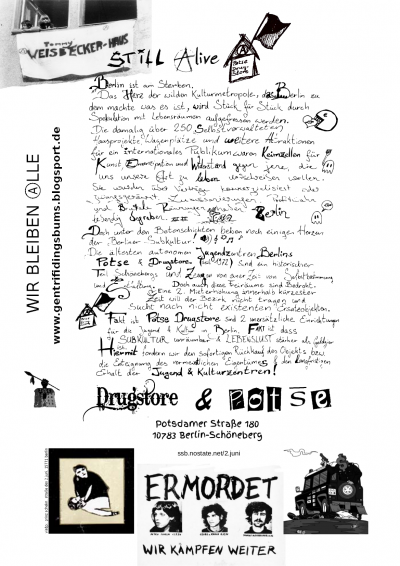 Tommy
WEISBECKER-HAUS
STILL Alive
POTSE
DRUG-
STORE
Berlin ist am Sterben.
Das Herz der wilden Kulturmetropole, das Berlin zu
dem machte was es ist, wird Stück für Stück durch
Spekulation mit Lebensräumen aufgefressen werden.
Die damalig über 250 Selbstverwalteten
Hausprojekte, Wagenplätze und weitere Attraktionen
für ein internationales Publikum waren Keimzellen für
Kunst, Emanzipation und Widerstand gegen jene, die
uns unsere Art zu leben
Sie wurden über
und Brutale Räumungen
lebendig begraben. Berlin
Doch unter den Betonschichten beben noch einige Herzen
der Berliner Subkultur!
Die ältesten autonomen Jugendzentren Berlins
Potse & Drugstore, (seit 1972) sind ein historischer
Teil Schönebergs und Zeugen von einer Zeit von Selbstbestimmung
und Entfaltung. Doch auch diese Freiräume sind Bedroht.
Eine 2. Mieterhöhung innerhalb kürzester
Zeit will der Bezirk nicht tragen und
sucht nach nicht existenten Ersatzobjekten.
Fakt ist Potse Drugstore sind 2 unersätzliche Einrichtungen
für die Jugend & Kultur in Berlin. Fakt ist dass
SUBKULTUR unräumbar & LEBENSLUST stärker als
ist.
Hiermit fordern wir den sofortigen Rückkauf des Objekts bzw.
die Enteignung des vermeintlichen Eigentümers & den langfristigen
Erhalt der Jugend & Kulturzentren!
WIR BLEIBEN ALLE
www.gentrifidingsbums.blogsport.de
Drugstore & POTSE
Potsdamer Straße 180
10783 Berlin-Schöneberg
ssb.nostate.net/2.juni
ERMORDET
WIR KÄMPFEN WEITER